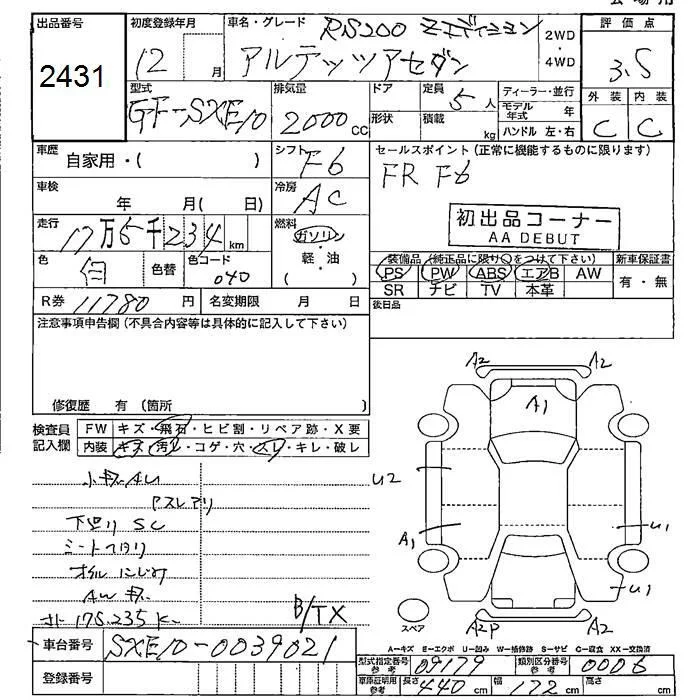 出品番号
2431
初度登録年月
12 月
車名・グレード
RS200 Zエディション
アルテッツアセダン
2WD
・
4WD
評価点
3.5
外装 内装
C C
型式
GF-SXE10
排気量
2000 cc
ドア
形状
定員
5人
積載
kg
ディーラー・並行
モデル年式 年
ハンドル 左・右
車歴
自家用・( )
シフト
F6
セールスポイント (正常に機能するものに限ります)
FR F6
車検
年 月 ( 日)
冷房
AC
初出品コーナー
AA DEBUT
走行
17万5千234 km
燃料
ガソリン
軽・油
( )
色
白
色替
色コード
040
装備品 (純正品に限り○をつけて下さい)
新車保証書
PS PW ABS エアB AW
有・無
SR ナビ TV 本革
R券 11780 円
名変期限 月 日
後日品
注意事項申告欄 (不具合内容等は具体的に記入して下さい)
修復歴 有 (箇所 )
検査員
記入欄
FW キズ・飛石・ヒビ割・リペア跡・X要
内装 キズ・汚れ・コゲ・穴・スレ・キレ・破レ
小キズAU
下廻り SC
オイルにじみ
AWキズ
175.235K
B/TX
車台番号 SXE10-0039021
登録番号
A2 A2
A1
U2
A1
U1
U1
A2P A2
スペア
A-キズ E-エクボ U-凹み W-補修跡 S-サビ C-腐食 XX-交換済
型式指定番号
参考
09179
類別区分番号
参考
0006
車庫証明用
参考
長さ 440 cm
幅 172 cm
高さ cm